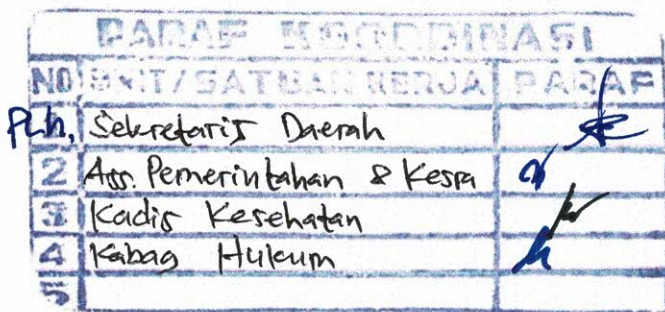 PARAF KOORDINASI
NO UNIT/SATUAN KERJA PARAF
Plh. Sekretaris Daerah
2 Ass. Pemerintahan & Kesra
3 Kadis Kesehatan
4 Kabag Hukum
5